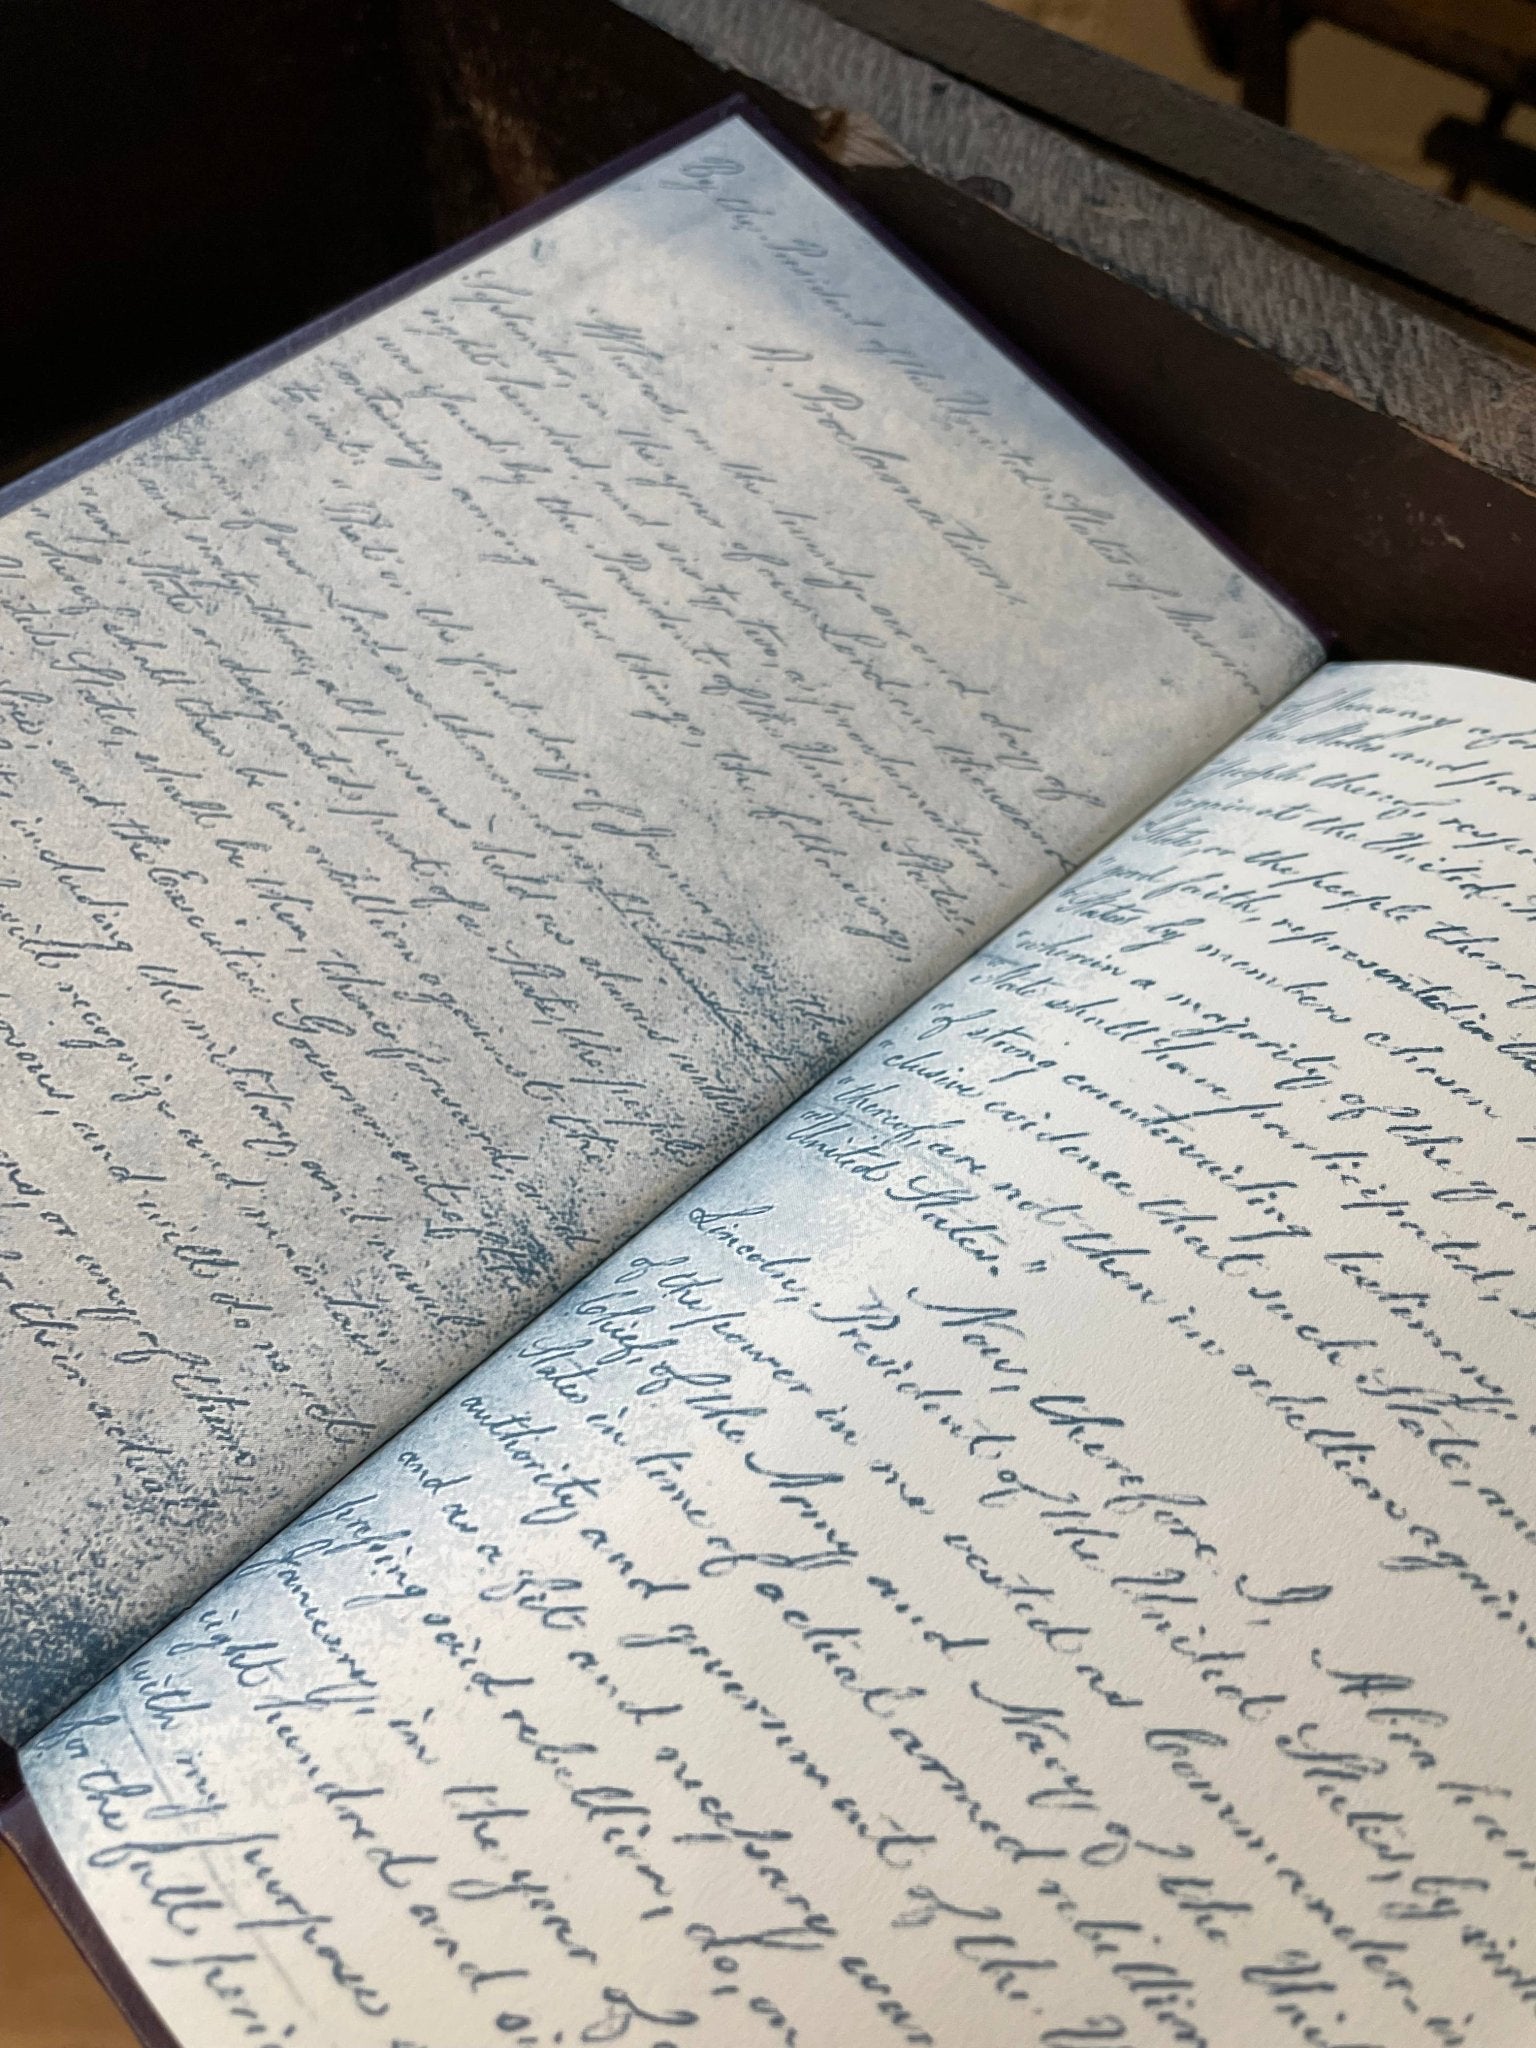 By the President of the United States of America
A Proclamation.
Whereas on the twenty second day of
September, in the year of our Lord one thousand
eight hundred and sixty two, a proclamation
was issued by the President of the United States,
containing, among other things, the following,
to wit:
"That on the first day of January, in the
year of our Lord one thousand eight hundred
and sixty-three, all persons held as slaves within
any State or designated part of a State, the people
whereof shall then be in rebellion against the
United States, shall be then, thenceforward, and
free; and the Executive Government of the
including the military and naval
will recognize and maintain
persons, and will do no act
or any of them,
their actual
January afore
the States and par
people thereof, resp
against the United S
State, or the people thereof
good faith, represented in the
States by members chosen
wherein a majority of the qua
State shall have participated, s
of strong countervailing testimony,
clusive evidence that such State, and
thereof, are not then in rebellion again
United States."
Now, therefore I, Abraham
Lincoln, President of the United States, by virtue
of the power in me vested as Commander-in
Chief, of the Army and Navy of the Unit
States in time of actual armed rebellion
authority and government of the U
and as a fit and necessary war
pressing said rebellion, do, on
January, in the year of
eight hundred and si
with my purpose
for the full peri